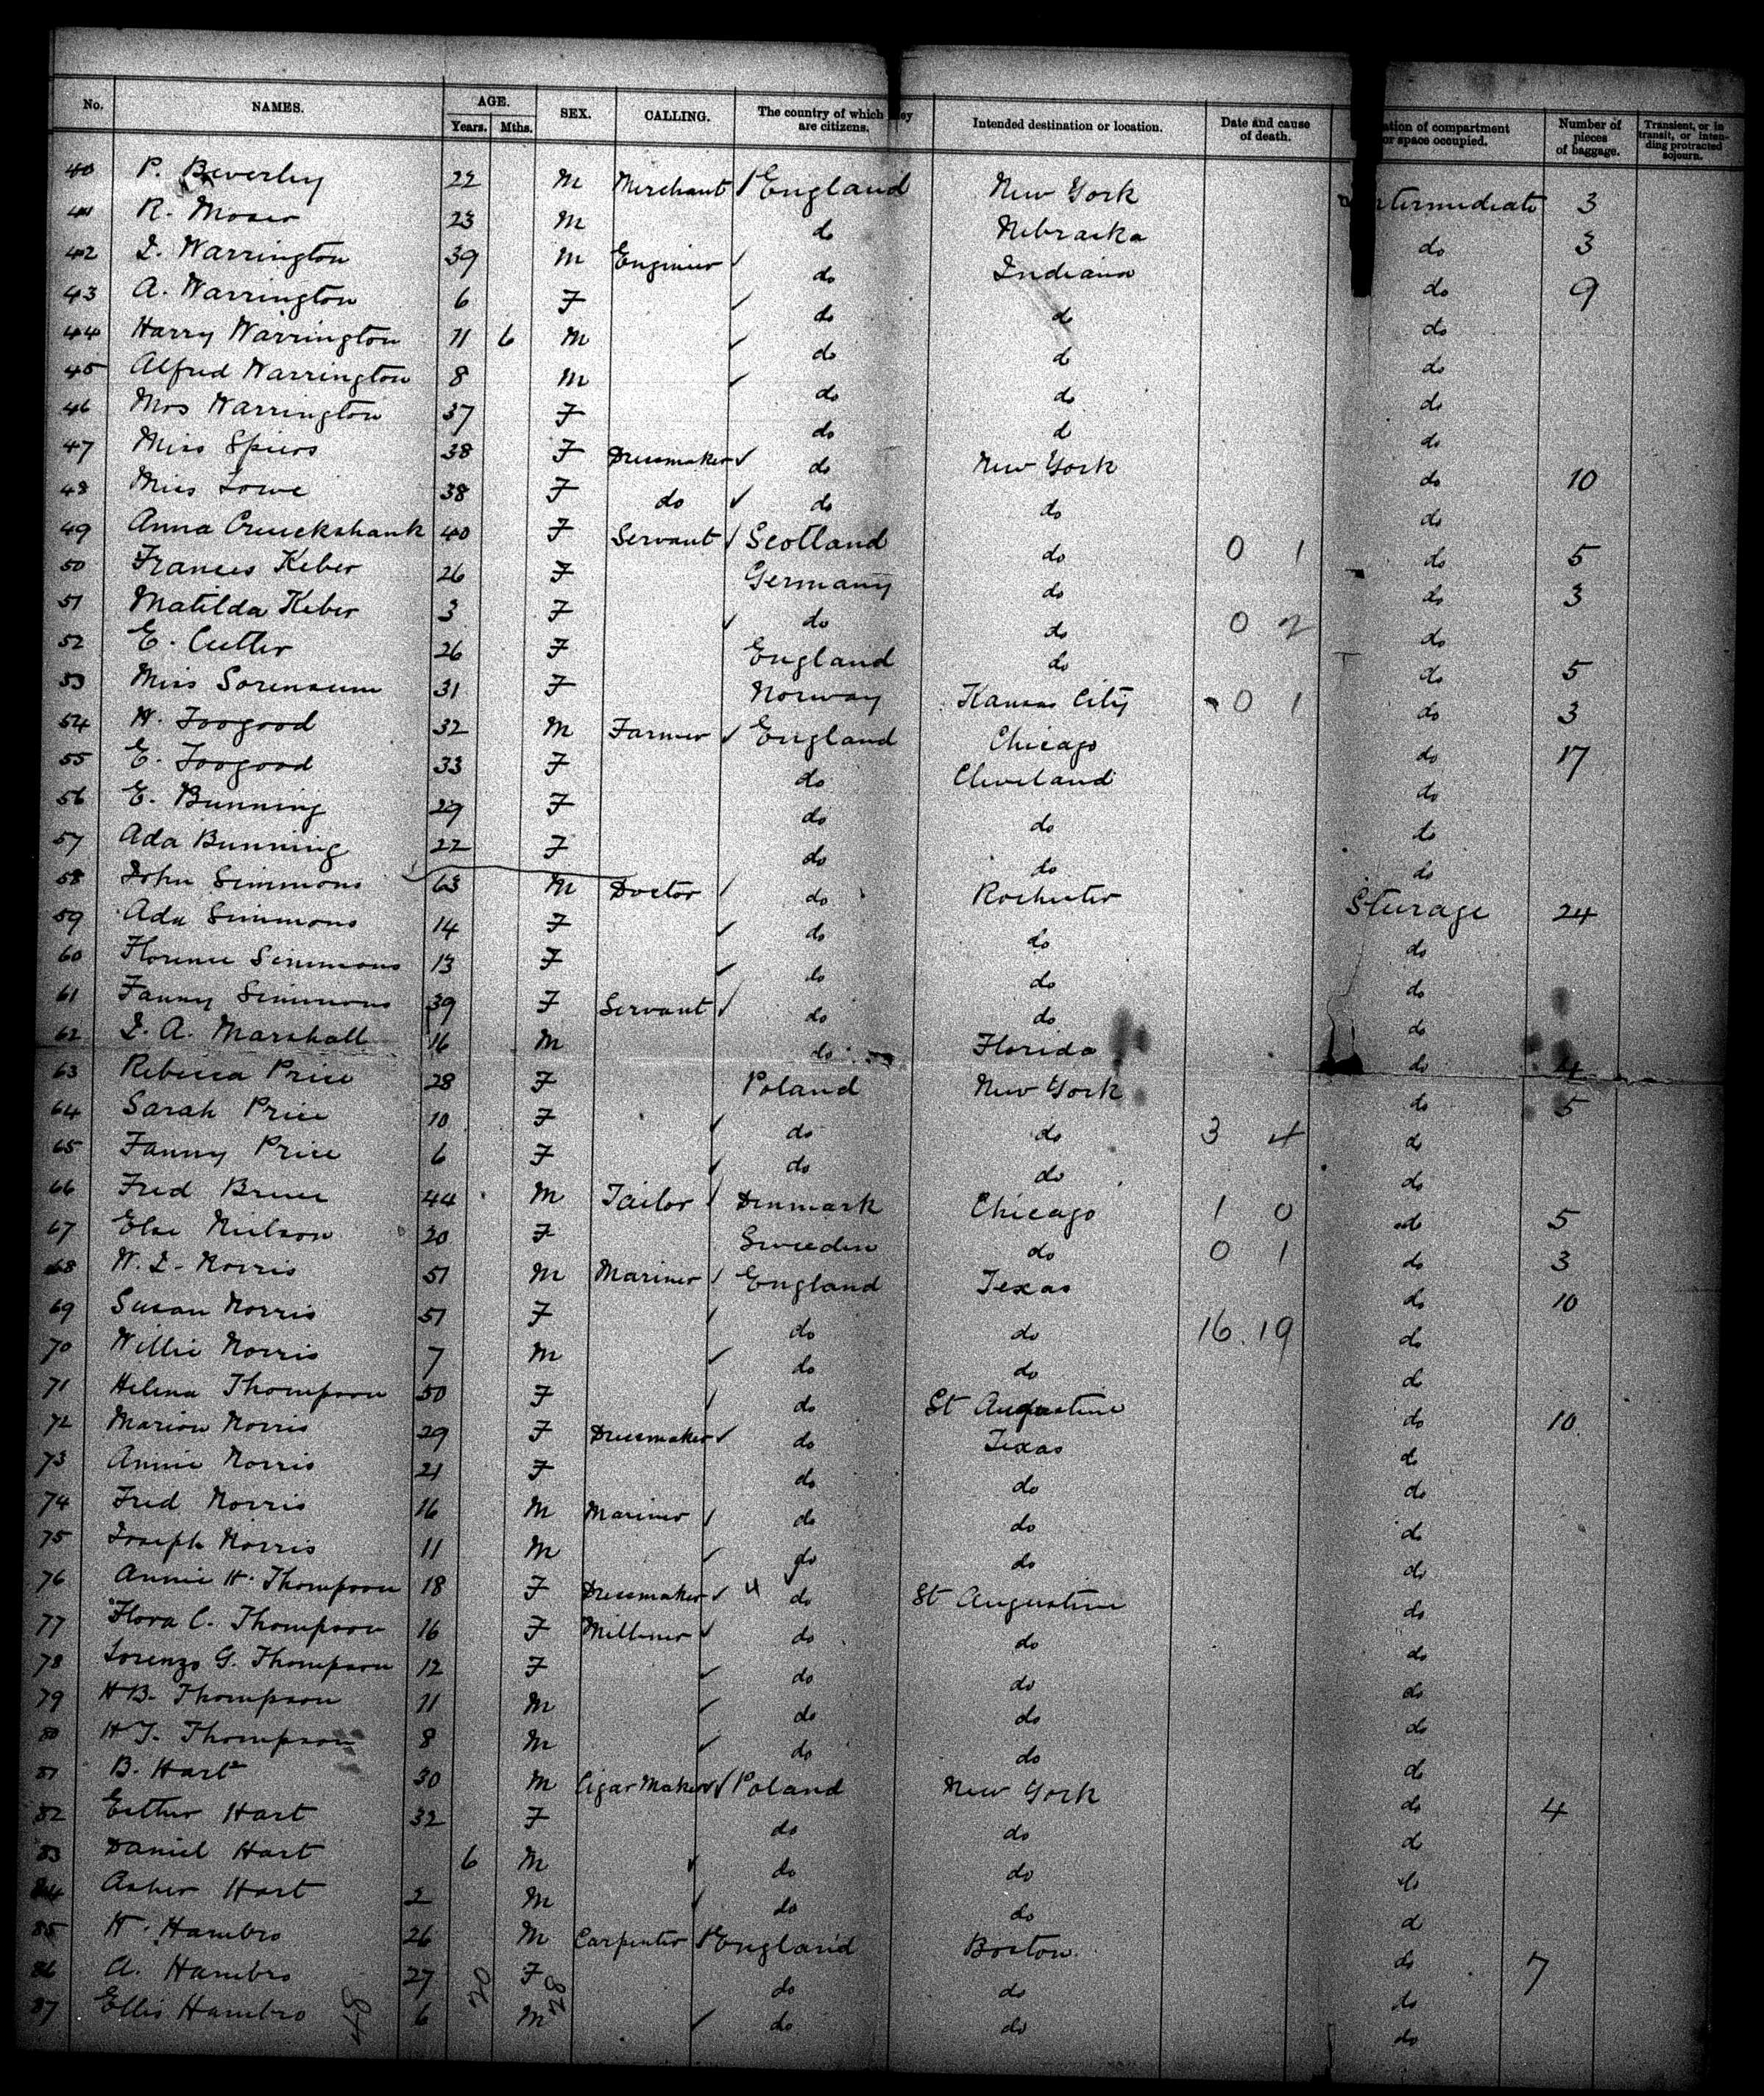 No. NAMES. AGE. Years. Mths. SEX. CALLING. The country of which they are citizens. Intended destination or location. Date and cause of death. ation of compartment or space occupied. Number of pieces of baggage. Transient, or in transit, or intending protracted sojourn.
40 P. Beverley 22 M Merchant England New York Intermediate 3
41 R. Moser 23 M do Nebraska do 3
42 J. Warrington 39 M Engineer do Indiana do 9
43 A. Warrington 6 F do do do
44 Harry Warrington 11 6 M do do do
45 Alfred Warrington 8 M do do do
46 Mrs Warrington 37 F do do do
47 Miss Spiers 38 F Dressmaker do New York do 10
48 Miss Lowe 38 F do do do do
49 Anna Cruickshank 40 F Servant Scotland do 0 1 do 5
50 Frances Keber 26 F Germany do do 3
51 Matilda Keber 3 F do do 0 2 do
52 E. Cutler 26 F England do do 5
53 Miss Sorensum 31 F Norway Kansas City 0 1 do 3
54 W. Toogood 32 M Farmer England Chicago do 17
55 E. Toogood 33 F do Cleveland do
56 E. Bunning 29 F do do do
57 Ada Bunning 22 F do do do
58 John Simmons 63 M Doctor do Rochester Steerage 24
59 Ada Simmons 14 F do do do
60 Florence Simmons 13 F do do do
61 Fanny Simmons 39 F Servant do do do
62 J. A. Marshall 16 M do Florida do 4
63 Rebecca Price 28 F Poland New York do 5
64 Sarah Price 10 F do do 3 4 do
65 Fanny Price 6 F do do do
66 Fred Brun 44 M Tailor Denmark Chicago 1 0 do 5
67 Else Nielson 20 F Sweeden do 0 1 do 3
68 W. J. Norris 51 M Mariner England Texas do 10
69 Susan Norris 51 F do do 16 19 do
70 Willie Norris 7 M do do do
71 Helena Thompson 50 F do St Augustine do 10
72 Marion Norris 29 F Dressmaker do Texas do
73 Annie Norris 21 F do do do
74 Fred Norris 16 M Mariner do do do
75 Joseph Norris 11 M do do do
76 Annie H. Thompson 18 F Dressmaker do St Augustine do
77 Flora C. Thompson 16 F Milliner do do do
78 Lorenzo G. Thompson 12 F do do do
79 H B. Thompson 11 M do do do
80 H J. Thompson 8 M do do do
81 B. Hart 30 M Cigar Maker Poland New York do 4
82 Esther Hart 32 F do do do
83 Daniel Hart 6 M do do do
84 Asher Hart 2 M do do do
85 H. Hambro 26 M Carpenter England Boston do 7
86 A. Hambro 27 F do do do
87 Ellis Hambro 6 M do do do
48 20 28